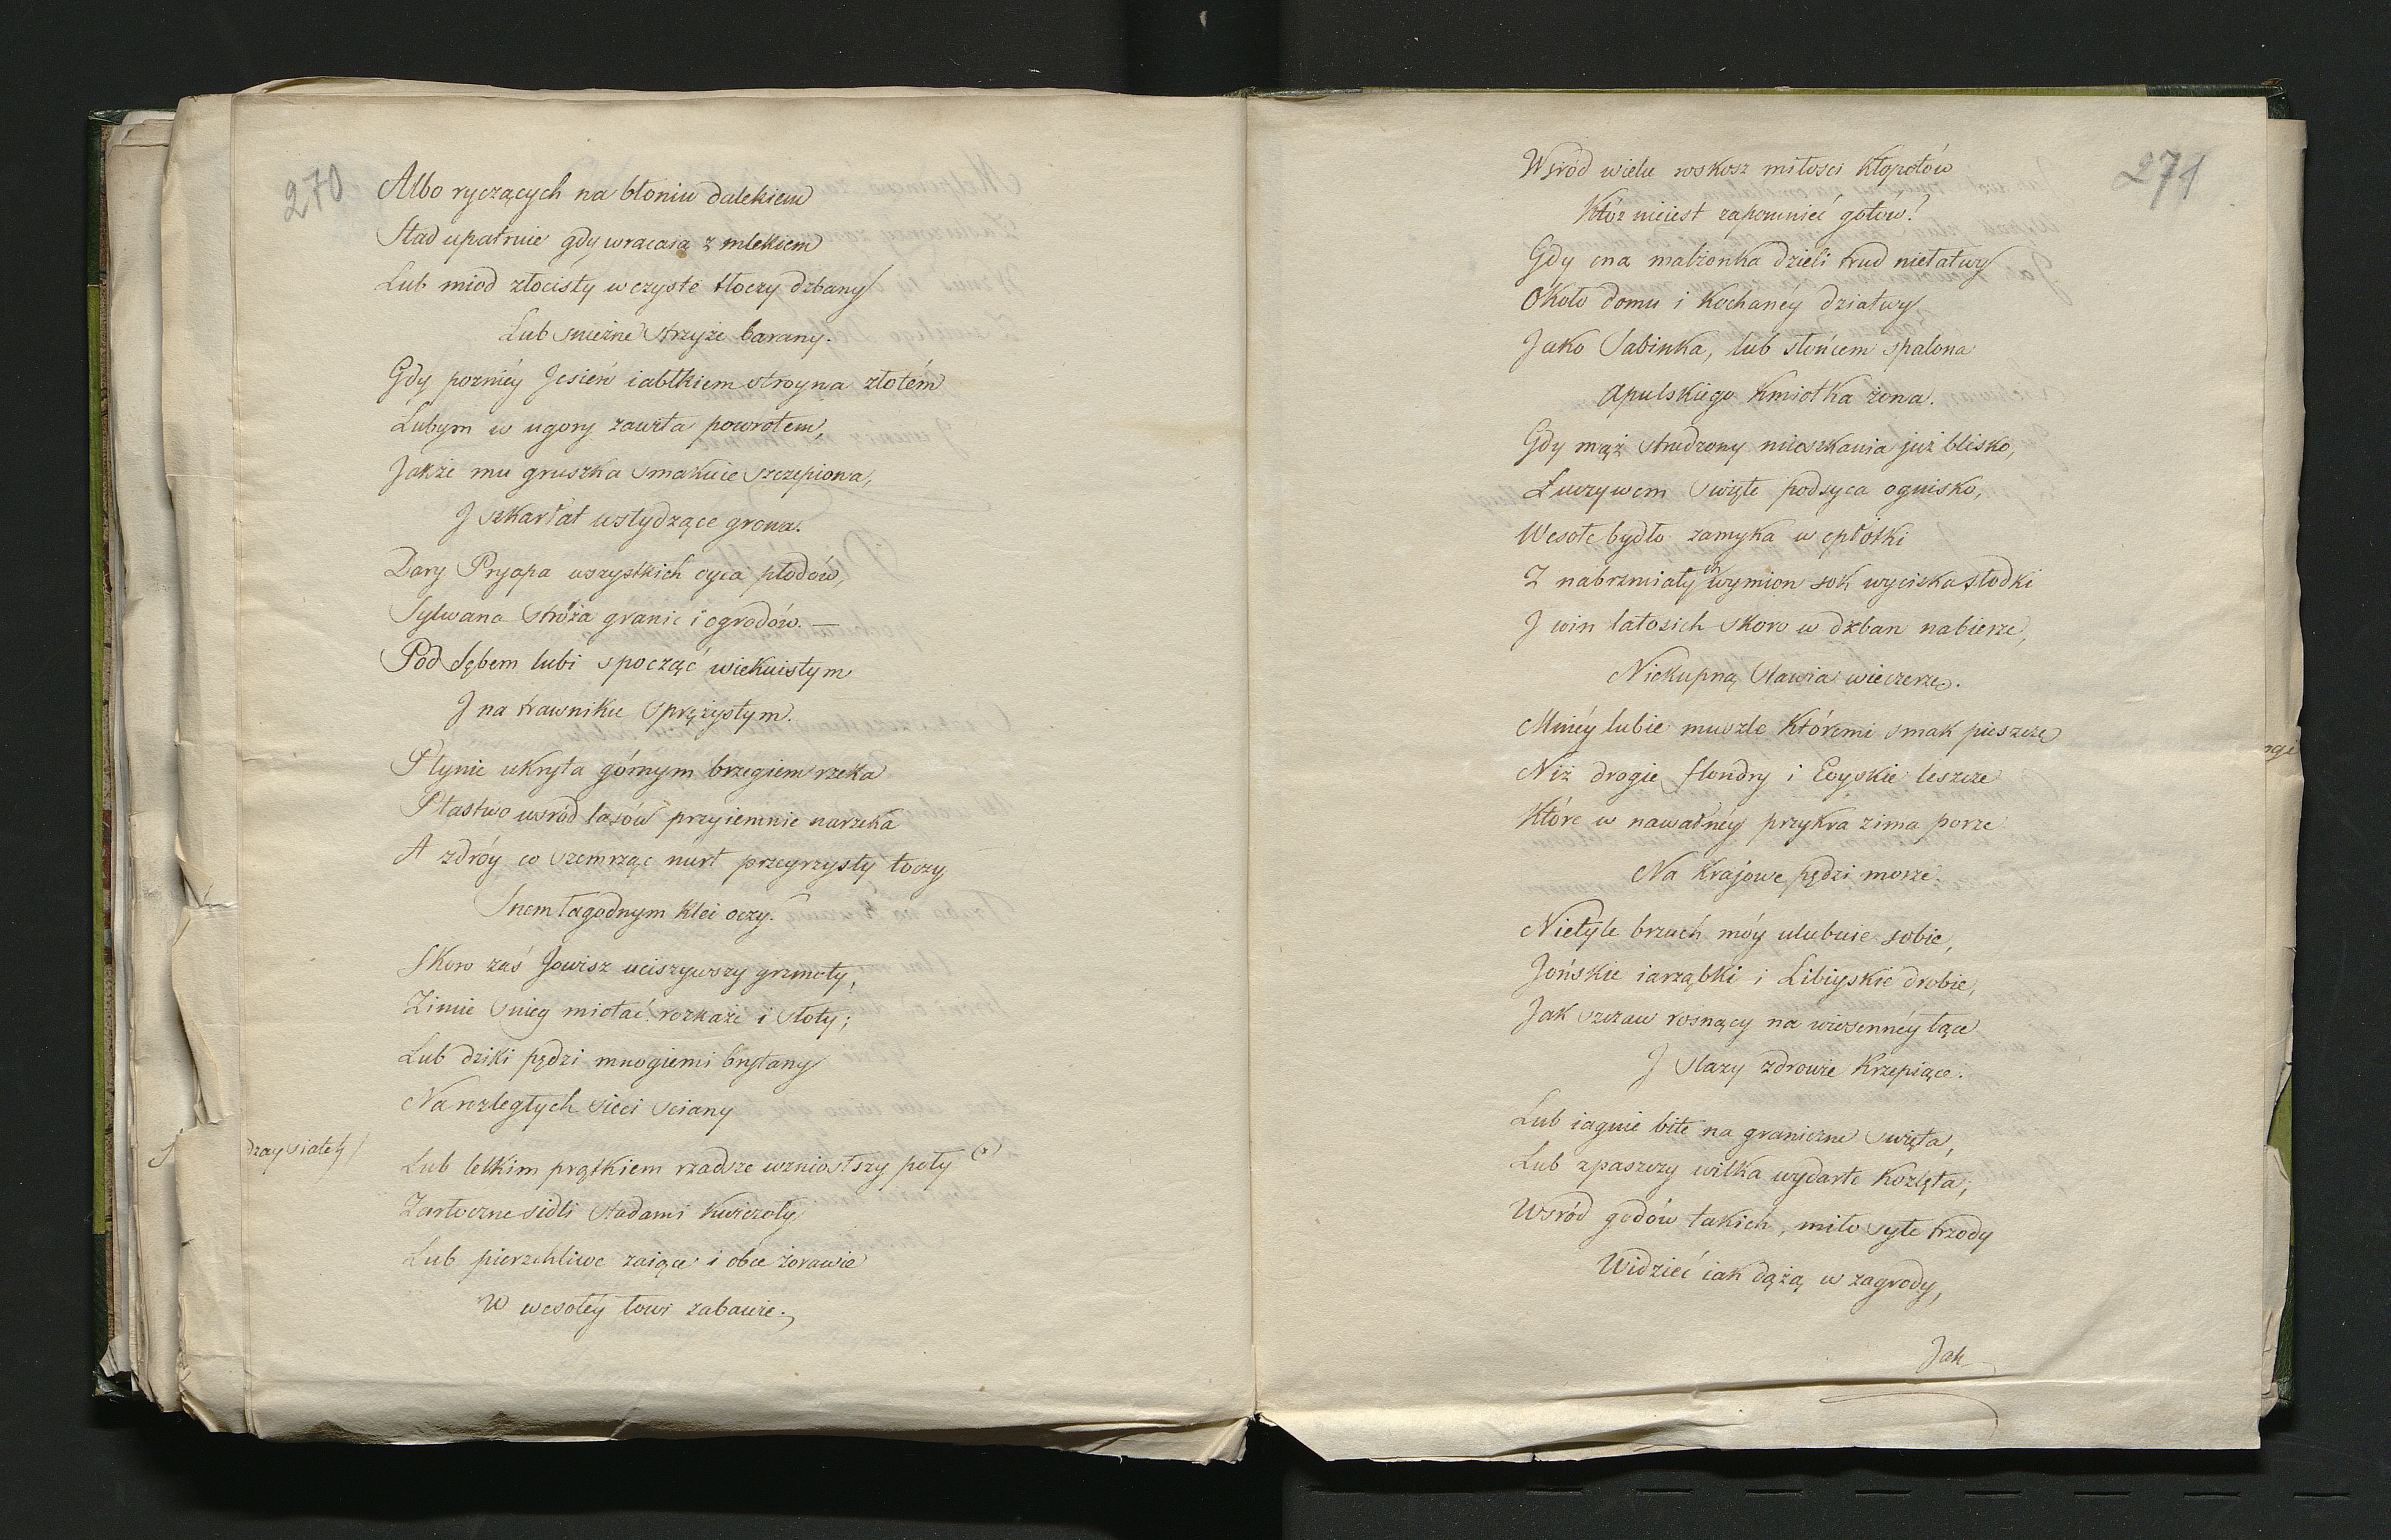 270
Albo ryczących na błoniu dalekiem
Stad upatruie gdy wracaią z mlekiem
Lub miod złocisty w czyste tłoczy dzbany
Lub snieżne strzyże barany.
Gdy poźniéy Jesień iabłkiem stroyna złotém
Lubym w ugory zawita powrotem,
Jakże mu gruszka smakuie szczepiona,
J szkarłat wstydzące grona.
Dary Pryapa wszystkich oyca płodów,
Sylwana stróża granic i ogrodów. —
Pod dębem lubi spocząć wiekuistym
J na trawniku sprężystym.
Płynie ukryta górnym brzegiem rzeka
Ptastwo wsród lasów przyiemnie narzeka
A zdróy co szemrząc nurt przeyrzysty toczy
Snem łagodnym klei oczy.
Skoro zaś Jowisz uciszywszy grzmoty,
Zimie snieg miotać rozkaże i słoty;
Lub dziki pędzi mnogiemi brytany
Na rozległych sieci sciany
Lub letkim prątkiem rzadsze wzniosłszy poły (x)
Żarłoczne sidli stadami kwiczoły
Lub pierzchliwe zaiące i obce żorawie
W wesołéy łowi zabawie.
271
Wsród wielu roskosz miłosci kłopotów
Któż nieiest zapomnieć gotów?
Gdy cna małżonka dzieli trud niełatwy
Około domu i kochanéy dziatwy
Jako Sabinka, lub słońcem spalona
Apulskiego kmiotka żona.
Gdy mąż strudzony mieszkania już blisko,
Łuczywem święte podsyca ognisko,
Wesołe bydło zamyka w opłotki
Z nabrzmiałych wymion sok wyciska słodki
J win latosich skoro w dzban nabierze,
Niekupną stawia wieczerzę.
Mniéy lubie muszle któremi smak pieszczę
Niż drogie flondry i Eoyskie leszcze
Które w nawałnéy przykra zima porze
Na krajowe pędzi morze.
Nietyle brzuch móy ulubuie sobie,
Jońskie iarząbki i Libiyskie drobie,
Jak szczaw rosnący na wiosennéy łące
J slazy zdrowie krzepiące.
Lub iagnie bite na graniczne święta,
Lub z paszczy wilka wydarte koźlęta;
Wsród godów takich, miło syte trzody
Widzieć iak dążą w zagrody,
Jak